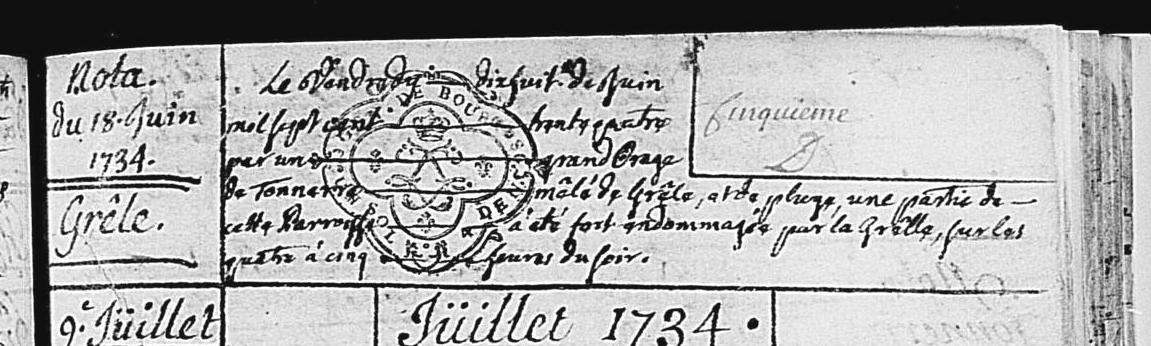 Nota.
du 18. Juin
1734.
Grêle.
Le Vendredy dixhuit de Juin
mil sept cent trente quatre
par un grand Orage
de Tonnerre mâlé de Grêle, et de pluye, une partie de
cette Parroisse a été fort endommagée par la Grêlle, sur les
quatre à cinq heures du soir.
Cinquieme
DE BOURG
9.e Juillet
Jüillet 1734.